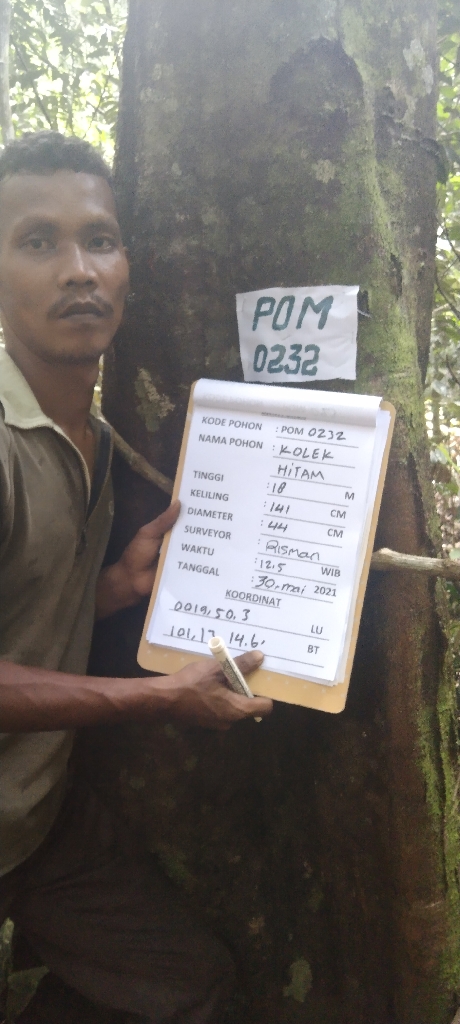 POM
0232
KODE POHON : POM 0232
NAMA POHON : KOLEK
HITAM
TINGGI : 18 M
KELILING : 141 CM
DIAMETER : 44 CM
SURVEYOR : Risman
WAKTU : 12.5 WIB
TANGGAL : 30, mai 2021
KOORDINAT
0019, 50.3 LU
101, 14.6, BT